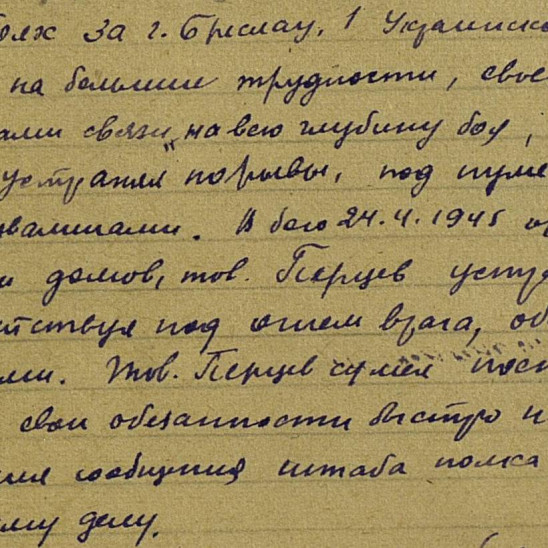 боях за г. Бреслау, 1 Украинско
на большие трудности, свое
ами связи на всю глубину боя,
устранял порывы, под пуле
валинами. В бою 24.4.1945
и домов, тов. Перцев устр
йствуя под огнем врага, об
ями. Тов. Перцев сумел пост
свои обезанности быстро и
сообщения штаба полка
ому делу.